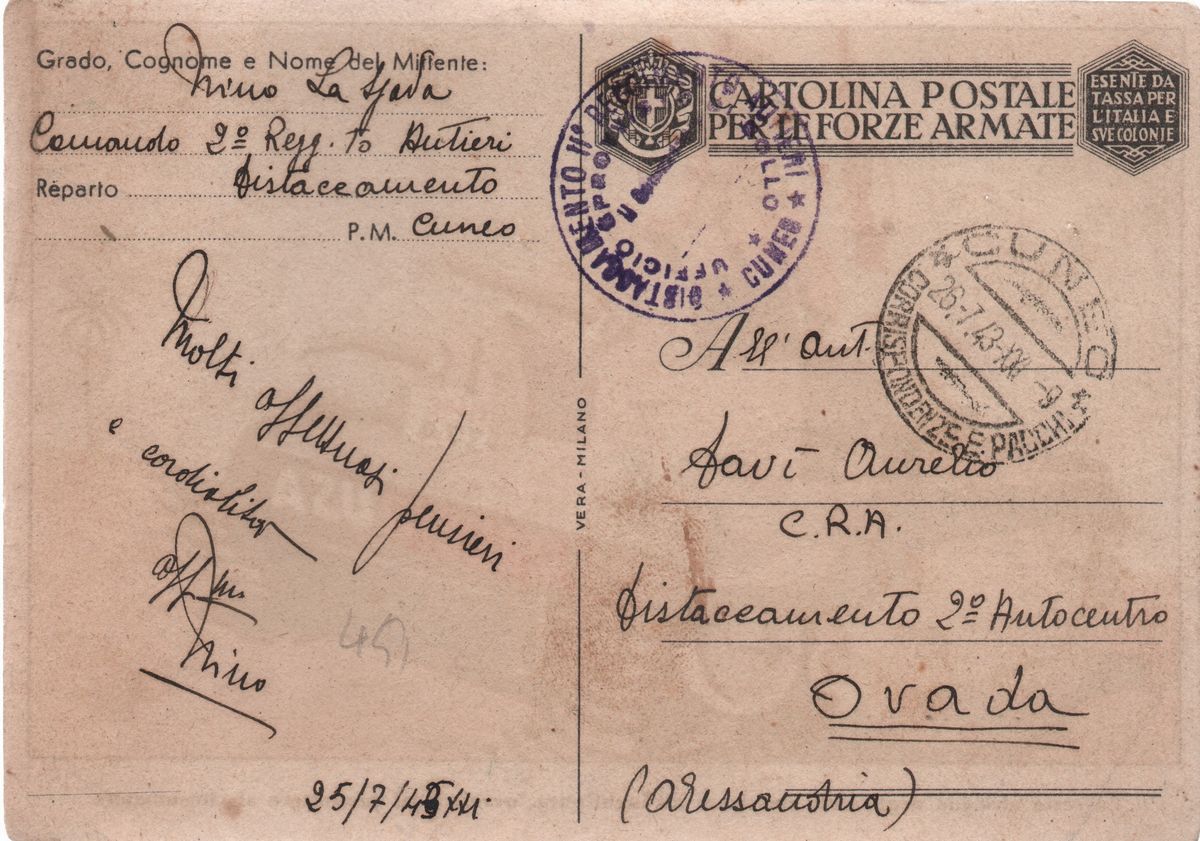 Grado, Cognome e Nome del Mittente:
Nino La
Comando 2º Regg.to Autieri
Reparto Distaccamento
P.M. Cuneo
Molti
affettuosi
pensieri
e
cordialità
aff.mo
Nino
25/7/43 XXI.
VERA - MILANO
CARTOLINA POSTALE
PER LE FORZE ARMATE
ESENTE DA
TASSA PER
L'ITALIA E
SVE COLONIE
DISTACCAMENTO IIº AUTIERI ★ CUNEO ★
UFFICIO
CUNEO
26.7.43-XXI -9
CORRISPONDENZE E PACCHI
All' Aut.
Savi Aurelio
C.R.A.
Distaccamento 2º Autocentro
Ovada
(Alessandria)